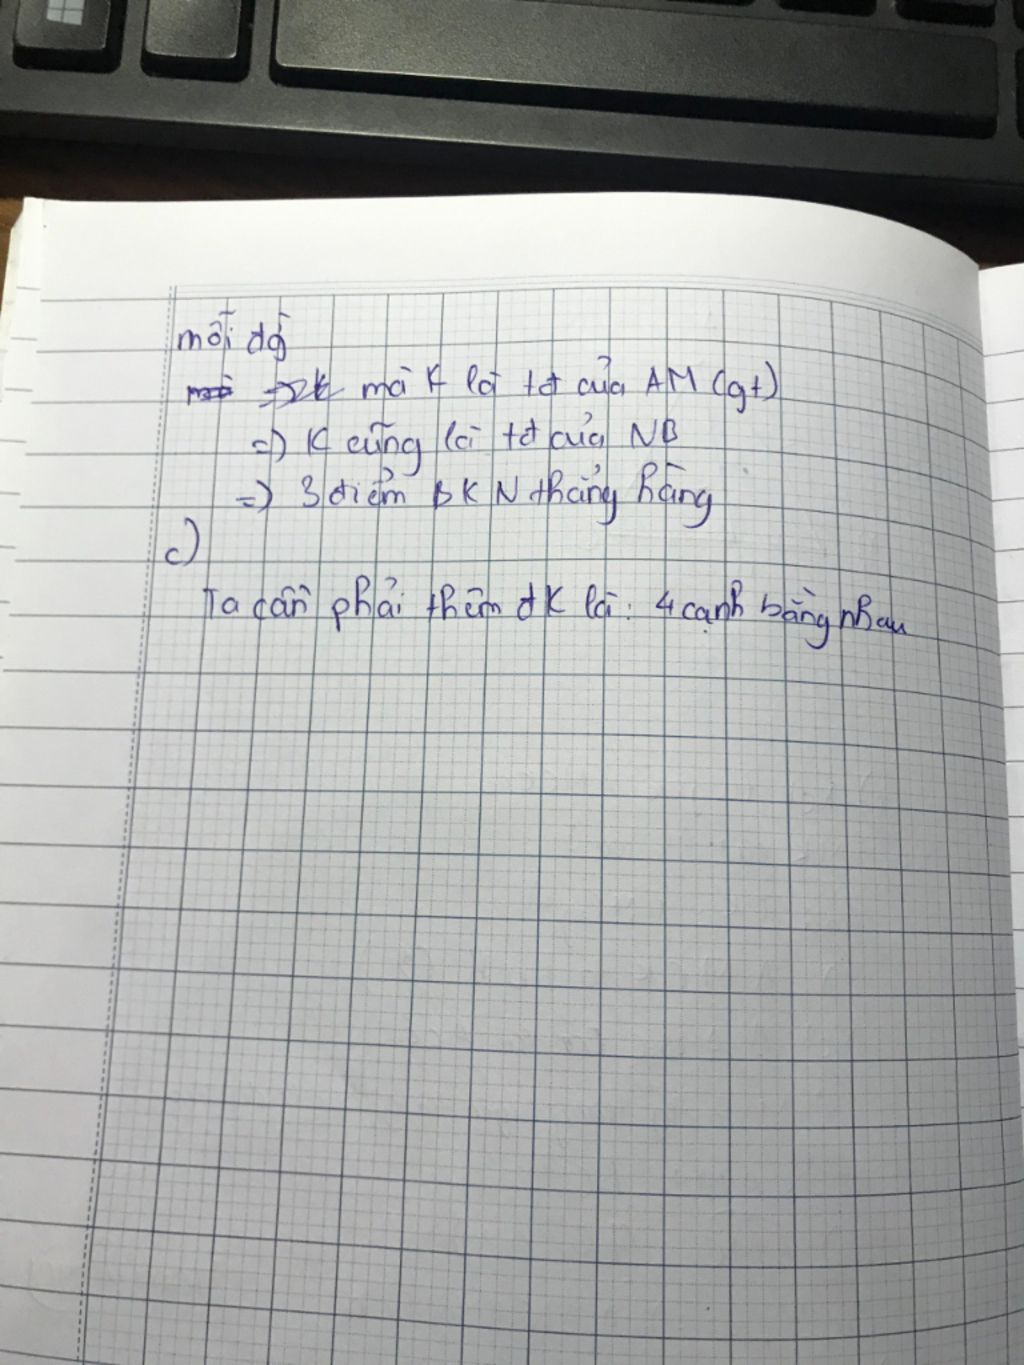 mỗi đg
mà K là tđ của AM (gt)
=) K cũng là tđ của NB
=) 3 điểm B K N thẳng hàng
c)
Ta cần phải thêm đK là: 4 cạnh bằng nhau